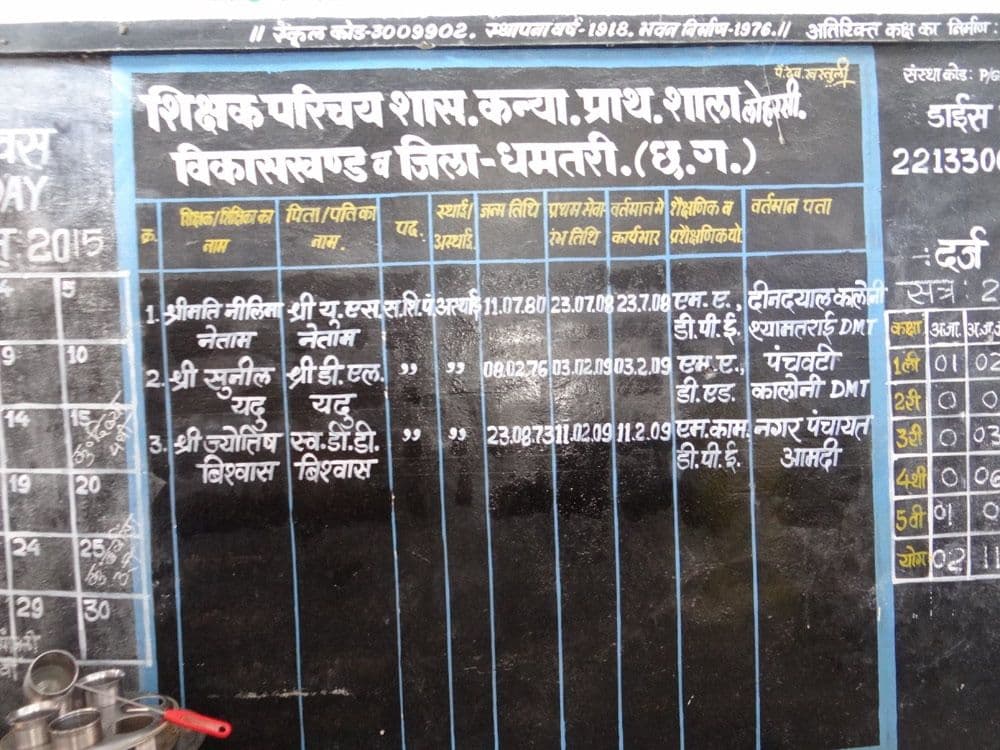 ॥ स्कूल कोड-3009902. स्थापना वर्ष-1918. भवन निर्माण-1976.॥ अतिरिक्त कक्ष का निर्माण:
शिक्षक परिचय शास. कन्या. प्राथ. शाला लोहरसी.
विकासखण्ड व जिला-धमतरी.(छ.ग.)
क्र. शिक्षक/शिक्षिका का नाम पिता/पति का नाम. पद. स्थाई/अस्थाई. जन्म तिथि प्रथम सेवा रंभ तिथि वर्तमान मे कार्यभार शैक्षणिक व प्रशैक्षणिक यो. वर्तमान पता
1. श्रीमति नीलिमा श्री यू.एस. स.शि.पं अस्थाई 11.07.80 23.07.08 23.7.08 एम.ए., दीनदयाल कलोनी
नेताम नेताम डी.पी.ई. श्यामतराई DMT
2. श्री सुनील श्री डी.एल. ,, ,, 08.02.76 03.02.09 03.2.09 एम.ए., पंचवटी
यदु यदु डी.एड. कालोनी DMT
3. श्री ज्योतिष स्व.डी.डी. ,, ,, 23.08.73 11.02.09 11.2.09 एम.काम. नगर पंचायत
बिश्वास बिश्वास डी.पी.ई. आमदी
वस
DAY
2015
4 5
9 10
14 15
19 20
24 25
29 30
संस्था कोड: P/G
डाईस
221330
:दर्ज
सत्र: 2
कक्षा अ.जा. अ.ज.
1ली 01 02
2री 0 0
3री 0 03
4थी 0 06
5वी 01 0
योग 02 11